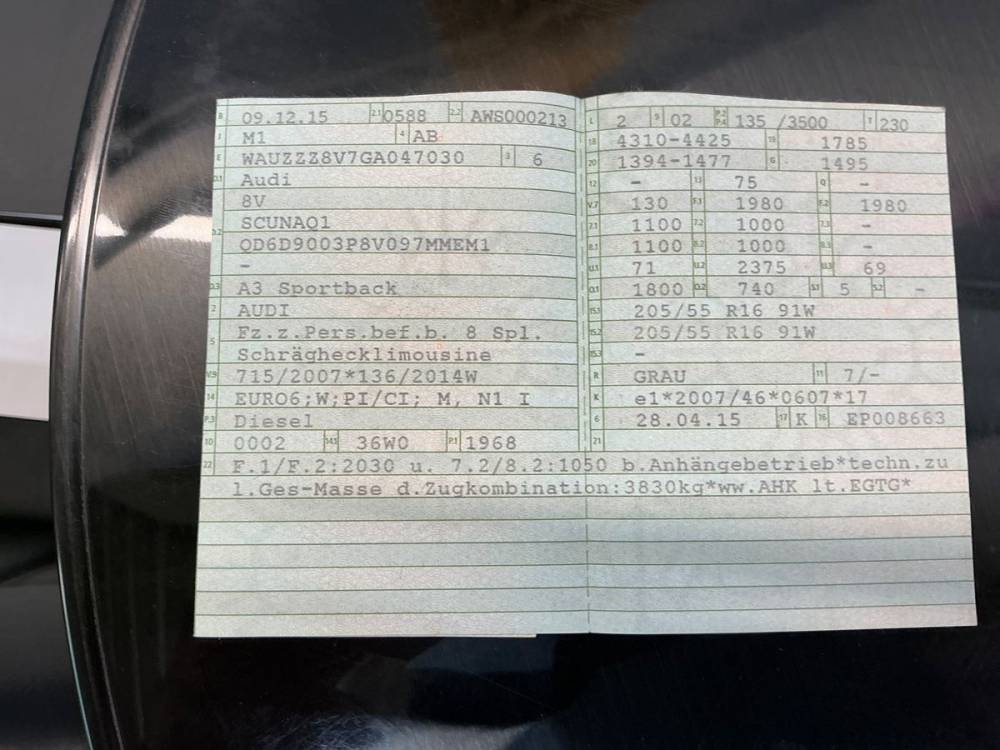 B 09.12.15 2.1 0588 2.2 AWS000213
J M1 4 AB
E WAUZZZ8V7GA047030 3 6
D.1 Audi
8V
D.2 SCUNAQ1
QD6D9003P8V097MMEM1
-
D.3 A3 Sportback
2 AUDI
5 Fz.z.Pers.bef.b. 8 Spl.
Schräghecklimousine
V.9 715/2007*136/2014W
14 EURO6;W;PI/CI; M, N1 I
P.3 Diesel
10 0002 14.1 36W0 P.1 1968
L 2 9 02 P.2 P.4 135 /3500 T 230
18 4310-4425 19 1785
20 1394-1477 G 1495
12 - 13 75 Q -
V.7 130 F.1 1980 F.2 1980
7.1 1100 7.2 1000 7.3 -
8.1 1100 8.2 1000 8.3 -
U.1 71 U.2 2375 U.3 69
O.1 1800 O.2 740 S.1 5 S.2 -
15.1 205/55 R16 91W
15.2 205/55 R16 91W
15.3 -
R GRAU 11 7/-
K e1*2007/46*0607*17
6 28.04.15 17 K 16 EP008663
21
22 F.1/F.2:2030 u. 7.2/8.2:1050 b.Anhängebetrieb*techn.zu
l.Ges-Masse d.Zugkombination:3830kg*ww.AHK lt.EGTG*